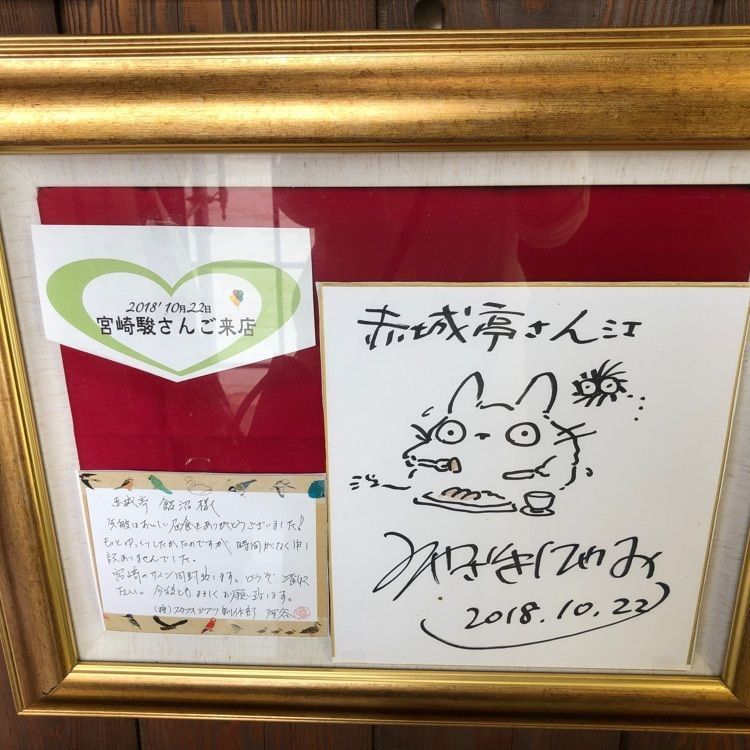 2018' 10月22日
宮崎駿さんご来店
赤城亭さん江
みやざきはやお
2018.10.22
赤城亭 飯沼様
先般はおいしい昼食をありがとうございました!
もっとゆっくりしたかったのですが、時間がなく申し
訳ありませんでした。
宮崎のサイン同封致します。どうぞご査収
下さい。今後ともよろしくお願い致します。
(株)スタジオジブリ 制作部